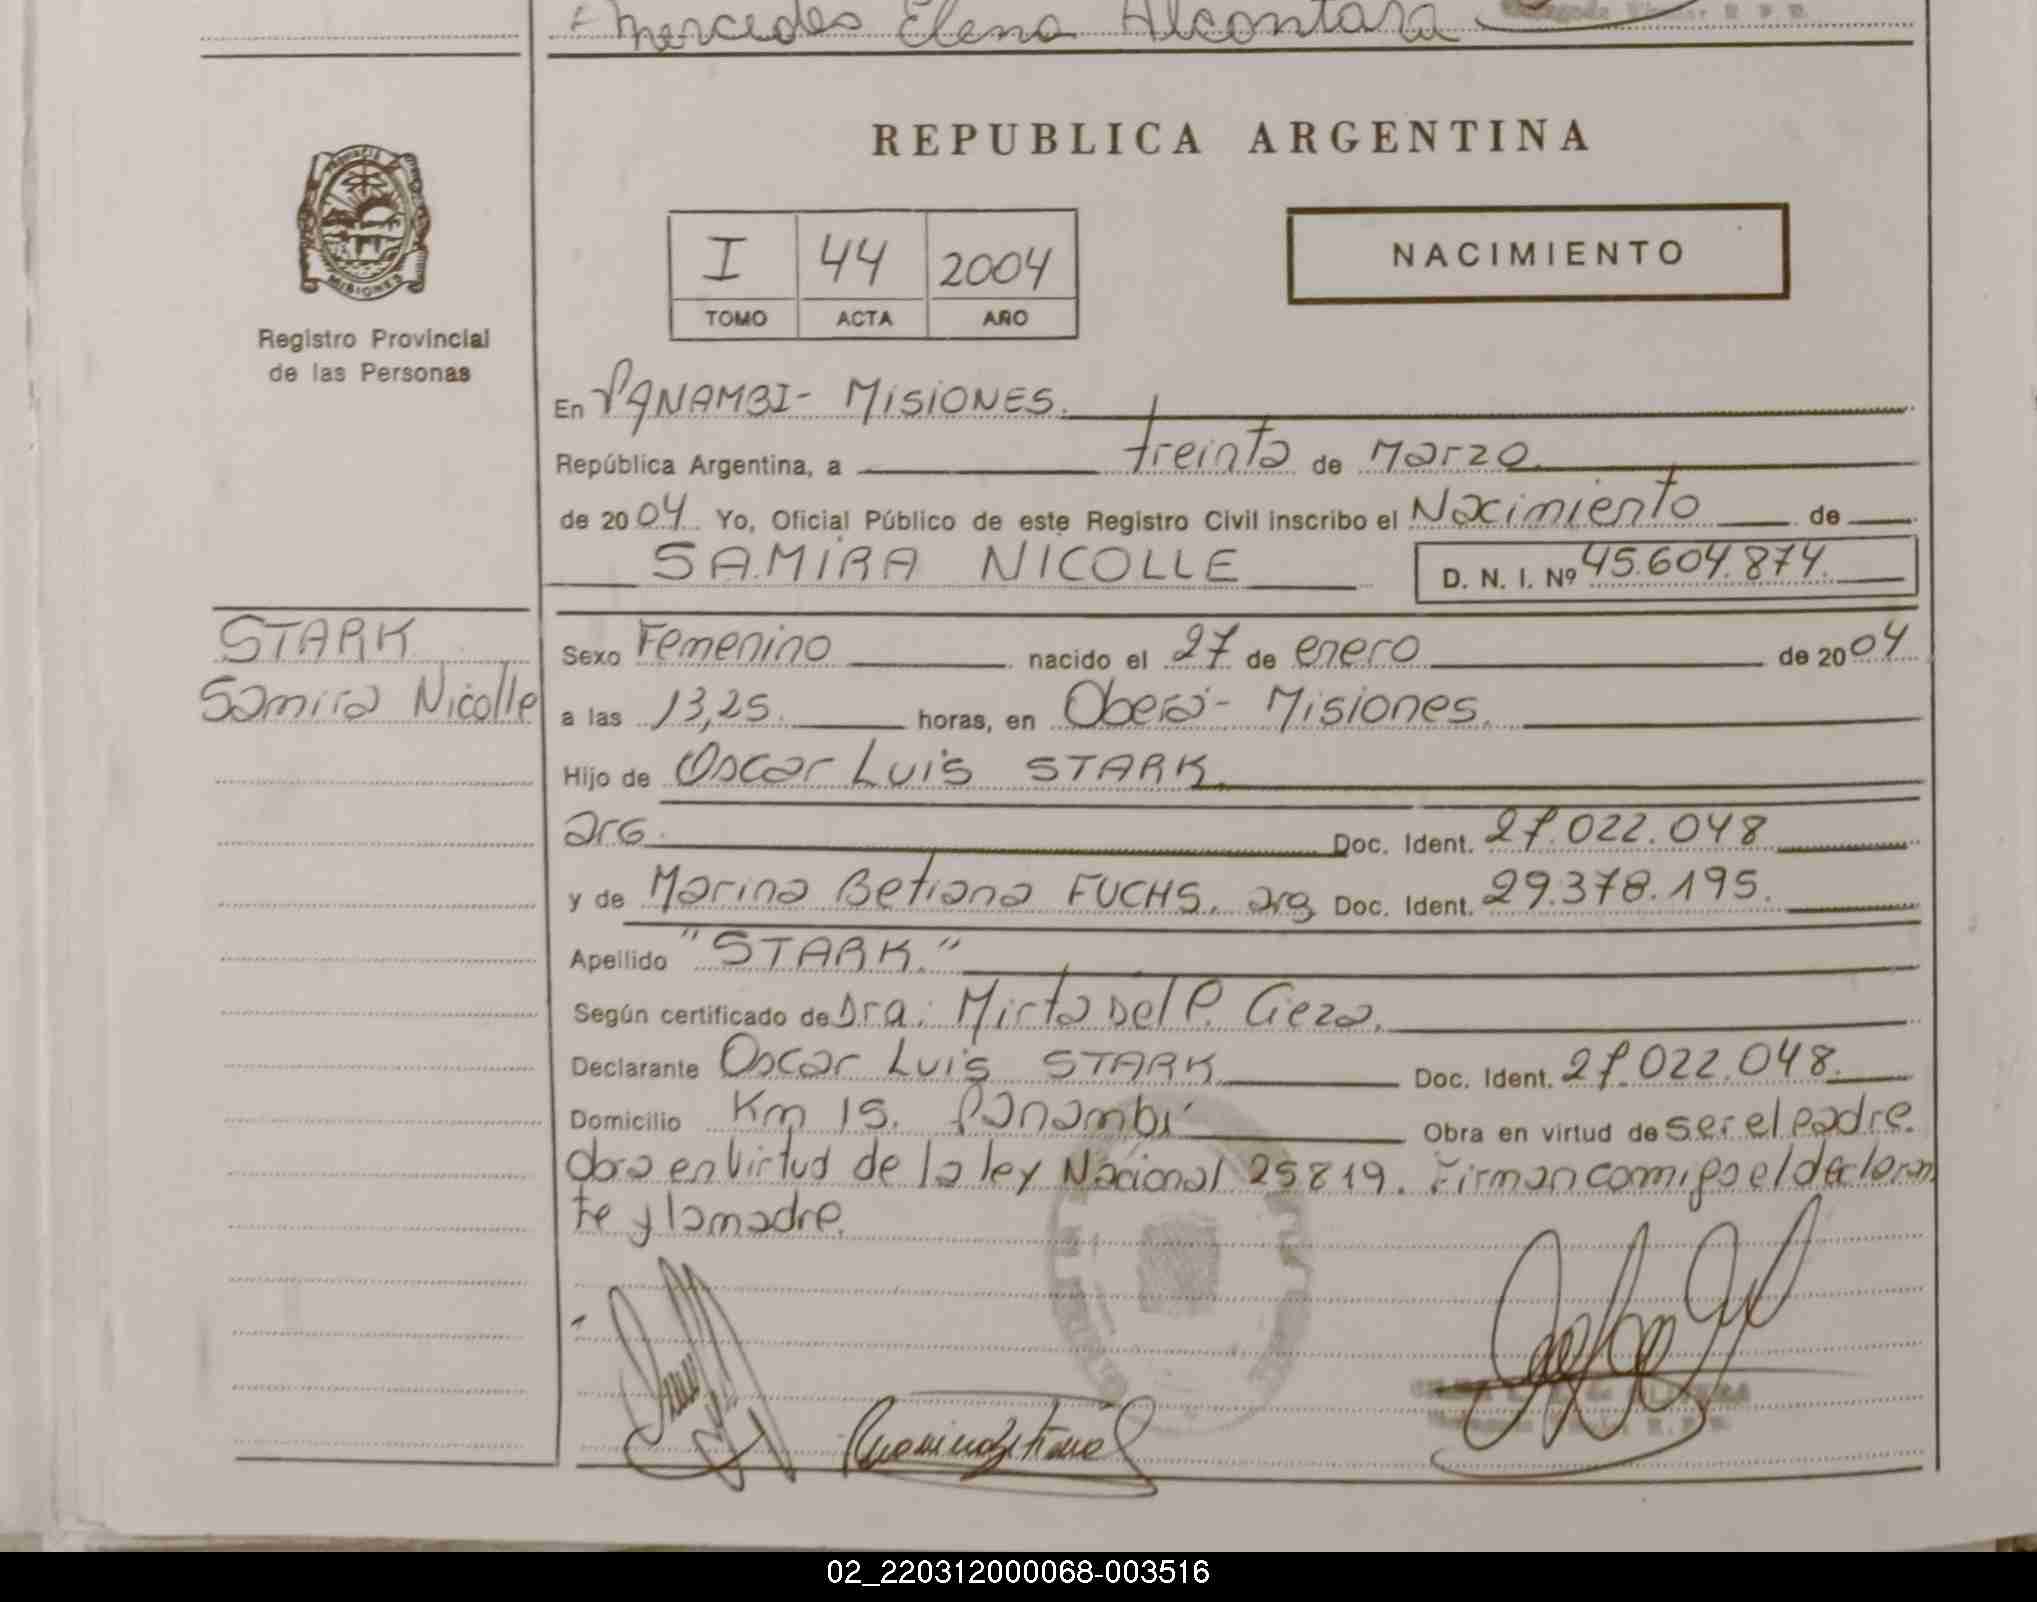 Mercedes Elena Alcantara
REPUBLICA ARGENTINA
I 44 2004
TOMO ACTA AÑO
NACIMIENTO
PROVINCIA
MISIONES
Registro Provincial
de las Personas
En PANAMBI- MISIONES.
República Argentina, a treinta de Marzo.
de 2004 Yo, Oficial Público de este Registro Civil inscribo el Nacimiento de
SAMIRA NICOLLE D. N. I. Nº 45.604.874.
STARK
Samira Nicolle
Sexo Femenino nacido el 27 de enero de 2004
a las 13,25. horas, en Oberá- Misiones.
Hijo de Oscar Luis STARK.
arg. Doc. Ident. 27.022.048
y de Marina Betiana FUCHS. arg Doc. Ident. 29.378.195.
Apellido "STARK."
Según certificado de Dra. Mirta Del P. Cieza.
Declarante Oscar Luis STARK Doc. Ident. 27.022.048.
Domicilio Km 15. Panambí Obra en virtud de ser el padre.
Obra en virtud de la ley Nacional 25819. Firman conmigo el declaran
te y la madre.
02_220312000068-003516